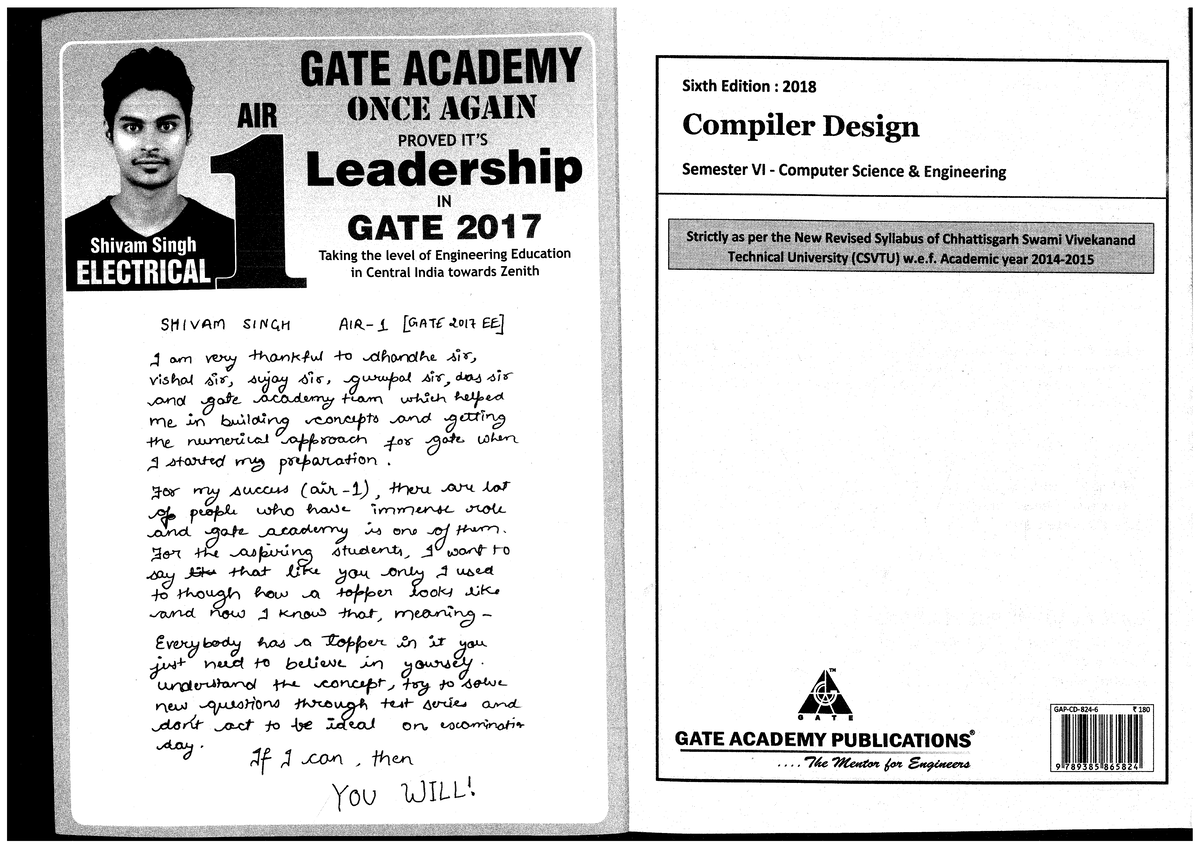 GATE ACADEMY
ONCE AGAIN
PROVED IT'S
Leadership
IN
GATE 2017
Taking the level of Engineering Education
in Central India towards Zenith
AIR
1
Shivam Singh
ELECTRICAL
SHIVAM SINGH AIR-1 [GATE 2017 EE]
I am very thankful to dhandhe sir,
vishal sir, sujay sir, gurupal sir, das sir
and gate academy team which helped
me in building concepts and getting
the numerical approach for gate when
I started my preparation.
For my success (air-1), there are lot
of people who have immense role
and gate academy is one of them.
For the aspiring students, I want to
say that like you only I used
to though how a topper looks like
and now I know that, meaning -
Everybody has a topper in it you
just need to believe in yourself.
understand the concept, try to solve
new questions through test series and
don't act to be ideal on examination
day.
If I can, then
YOU WILL!
Sixth Edition : 2018
Compiler Design
Semester VI - Computer Science & Engineering
Strictly as per the New Revised Syllabus of Chhattisgarh Swami Vivekanand
Technical University (CSVTU) w.e.f. Academic year 2014-2015
TM
GATE
GATE ACADEMY PUBLICATIONS®
....The Mentor for Engineers
GAP-CD-824-6 ₹ 180
9 789385 865824